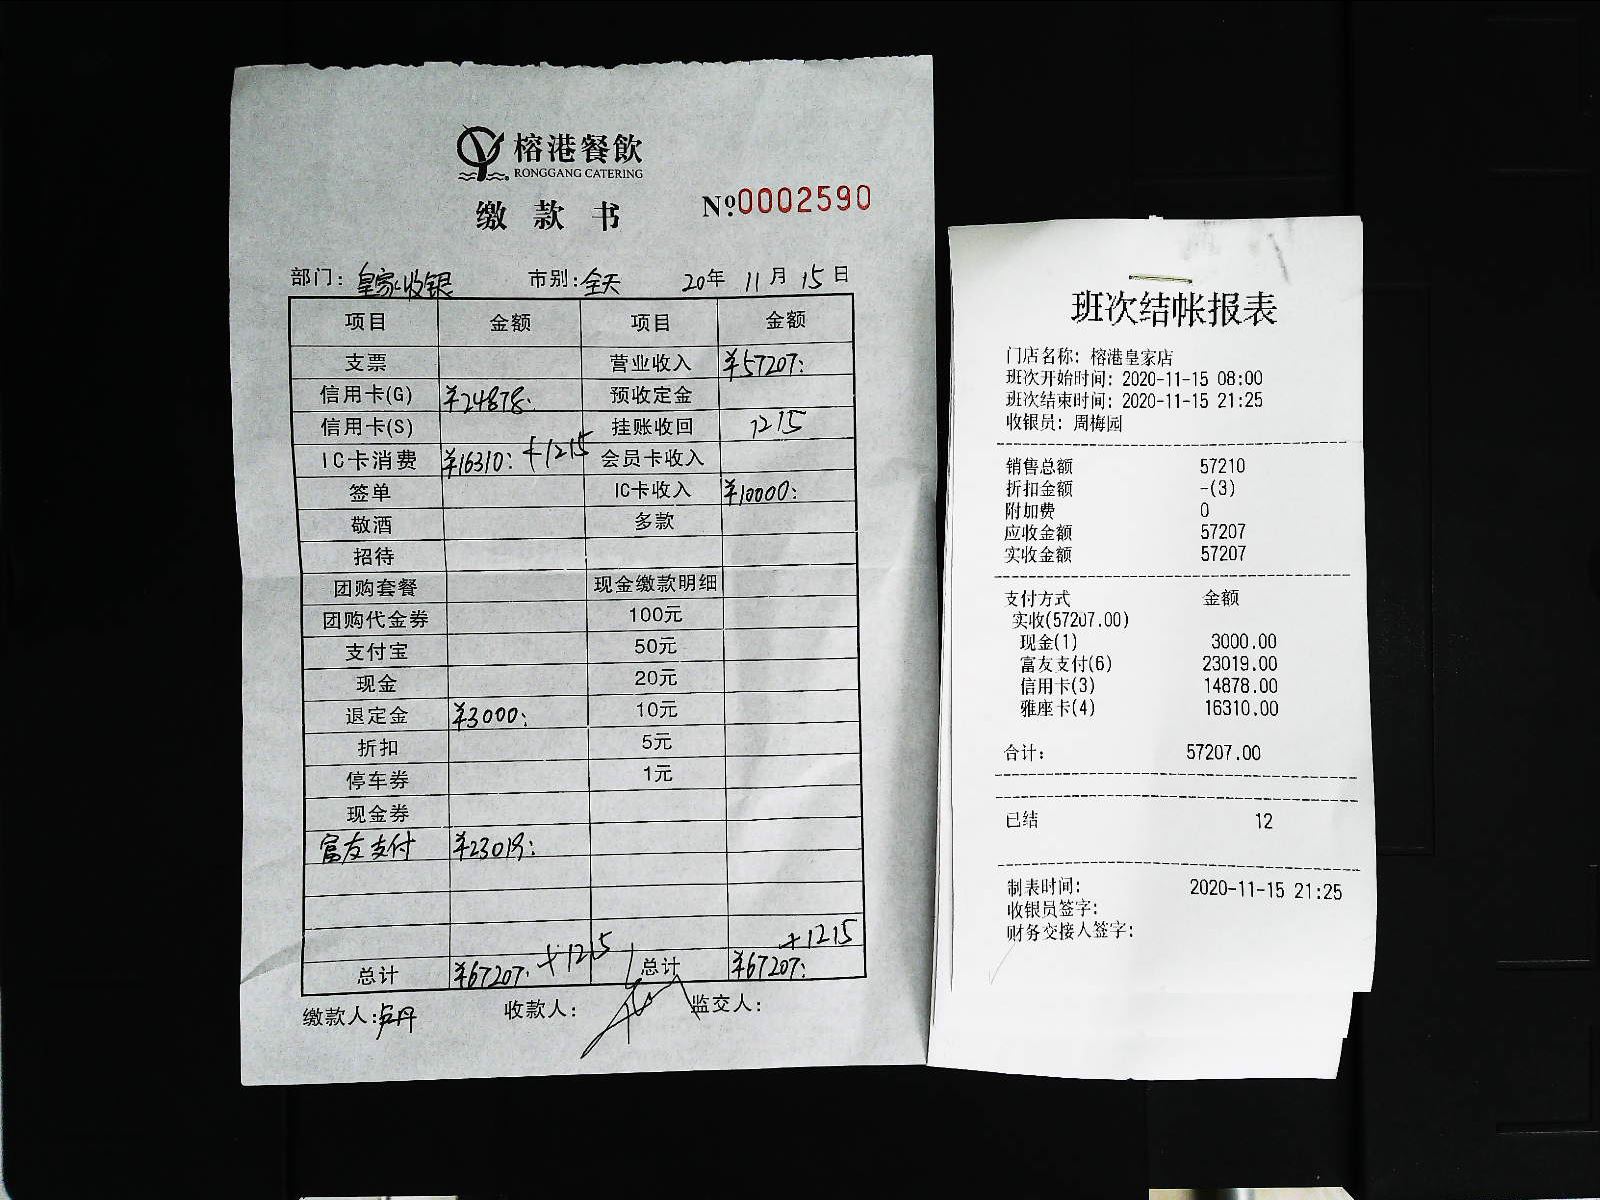 榕港餐飲
RONGGANG CATERING
缴款书 №0002590
部门: 皇家收银 市别: 全天 20年 11月 15日
项目 金额 项目 金额
支票 营业收入 ¥57207:
信用卡(G) ¥24878: 预收定金
信用卡(S) 挂账收回 1215
IC卡消费 ¥16310: +1215 会员卡收入
签单 IC卡收入 ¥10000:
敬酒 多款
招待
团购套餐 现金缴款明细
团购代金券 100元
支付宝 50元
现金 20元
退定金 ¥3000: 10元
折扣 5元
停车券 1元
现金券
富友支付 ¥23019:
总计 ¥67207: +1215 总计 ¥67207: +1215
缴款人: 卢丹 收款人: 监交人:
班次结帐报表
门店名称: 榕港皇家店
班次开始时间: 2020-11-15 08:00
班次结束时间: 2020-11-15 21:25
收银员: 周梅园
销售总额 57210
折扣金额 -(3)
附加费 0
应收金额 57207
实收金额 57207
支付方式 金额
实收(57207.00)
现金(1) 3000.00
富友支付(6) 23019.00
信用卡(3) 14878.00
雅座卡(4) 16310.00
合计: 57207.00
已结 12
制表时间: 2020-11-15 21:25
收银员签字:
财务交接人签字: